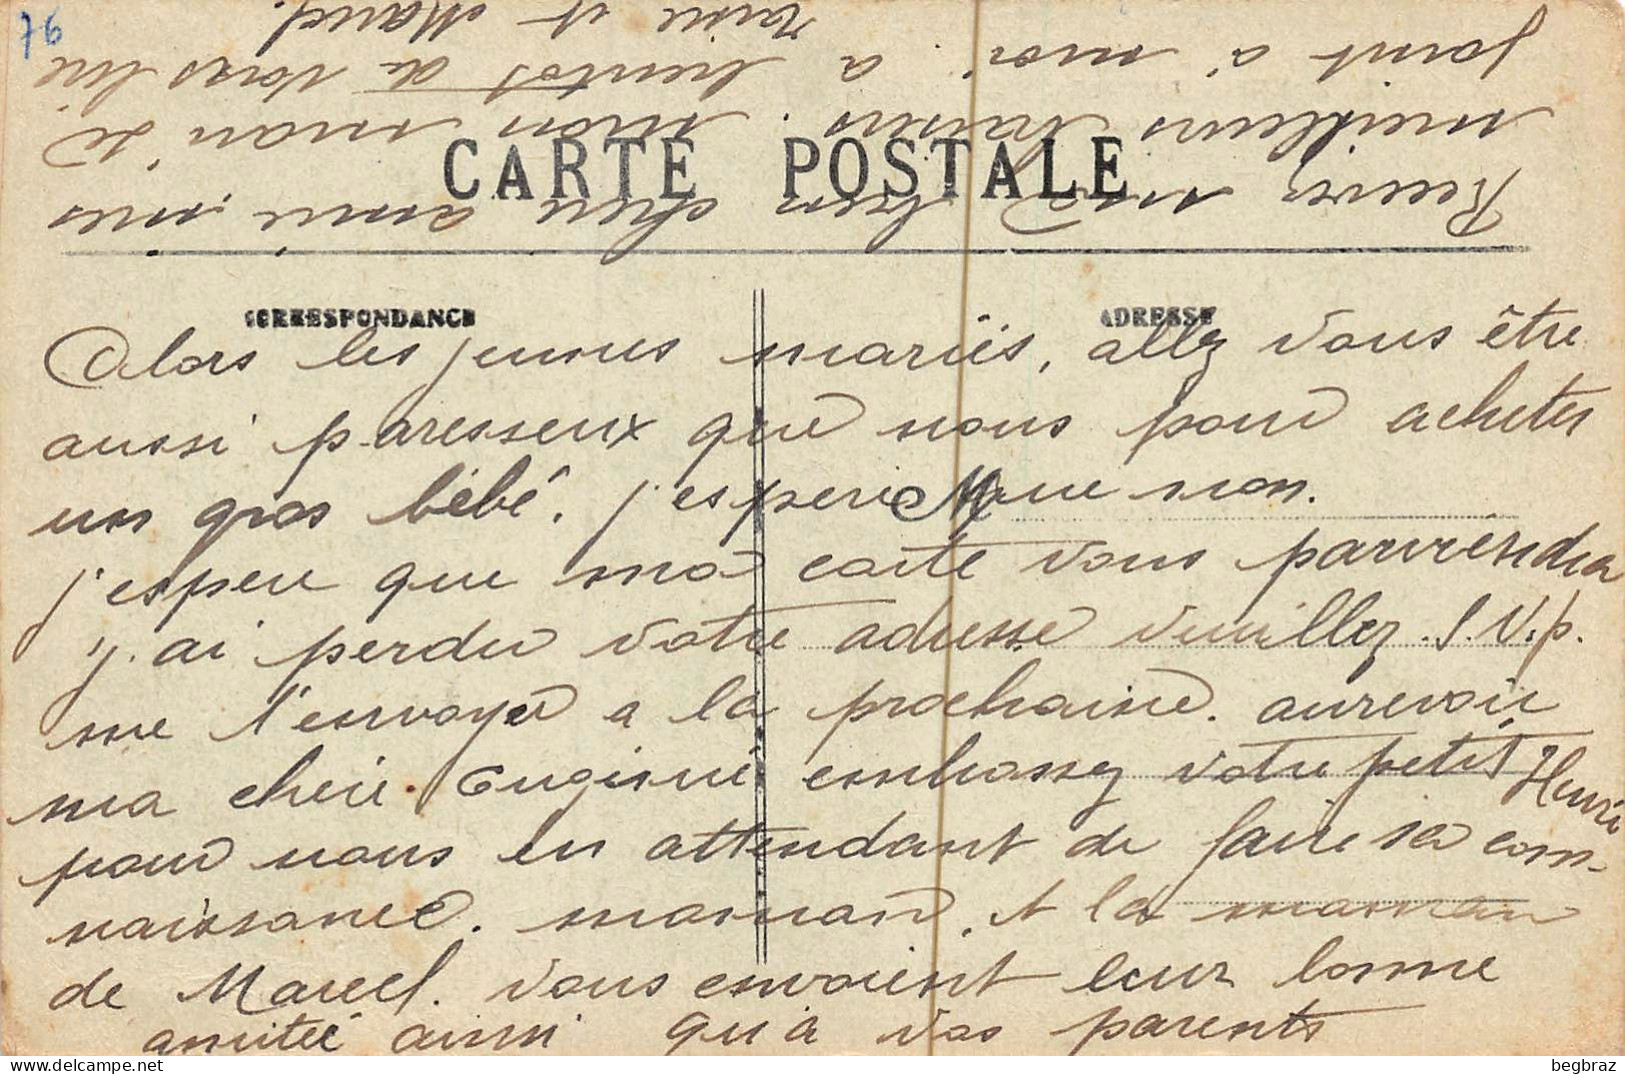 76
CARTE POSTALE
CORRESPONDANCE
ADRESSE
Alors les jeunes mariés, allez vous être
aussi paresseux que nous pour acheter
un gros bébé. j'espere que non.
j'espere que ma carte vous parviendra
j'ai perdu votre adresse veuillez S.V.p.
me l'envoyer a la prochaine. aurevoir
ma cherie Eugenie embrassez votre petit Henri
pour nous en attendant de faire sa con-
naissance. maman et la maman
de Marcel. vous envoient leur bonne
amitié ainsi qu'à vos parents
Recevez ma bien chere amie mes
meilleurs baisers. mon mari se
joint à moi. a bientot de vous lire
et Marcel.
begbraz